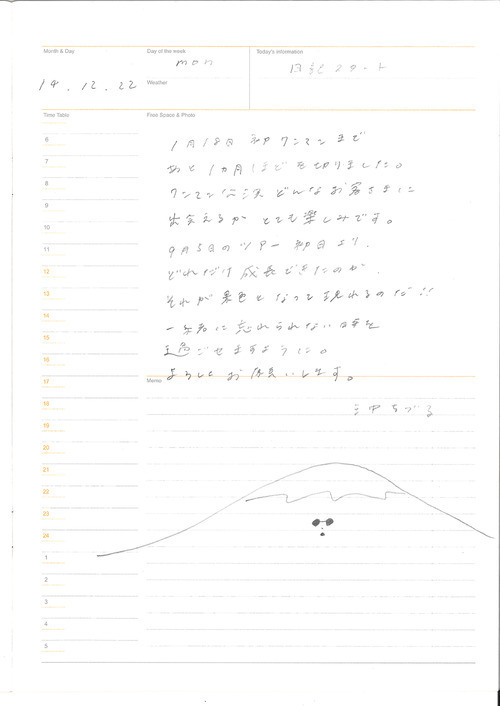 Month & Day
Day of the week
Today's information
mon
日記スタート
14.12.22
Weather
Time Table
Free Space & Photo
1月18日 初ワンマンまで
あと1カ月を切りました。
ワンマン公演 どんなお客さまに
出会えるか とても楽しみです。
9月5日のツアー初日より、
どれだけ成長できたのか、
それが景色となって現れるのだ!!
一緒に忘れられない時を
過ごせますように。
よろしくお願いします。
Memo
ちづる
6
7
8
9
10
11
12
13
14
15
16
17
18
19
20
21
22
23
24
1
2
3
4
5